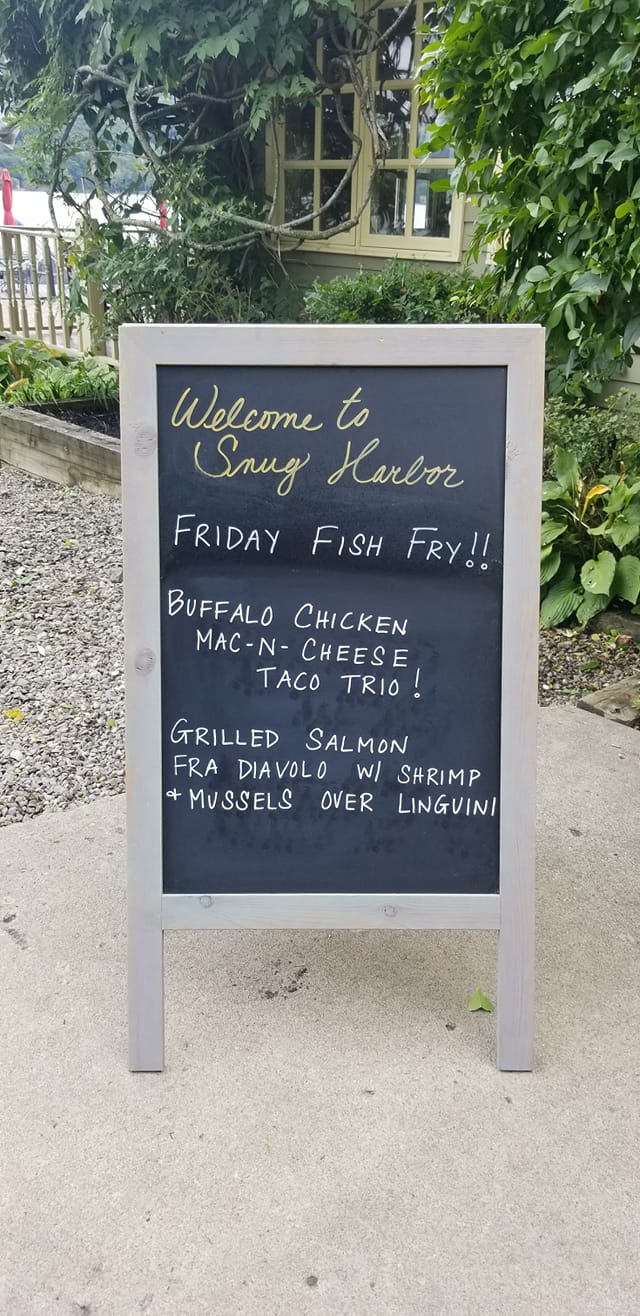 Welcome to
Snug Harbor
FRIDAY FISH FRY!!
BUFFALO CHICKEN
MAC-N-CHEESE
TACO TRIO!
GRILLED SALMON
FRA DIAVOLO W/ SHRIMP
+ MUSSELS OVER LINGUINI